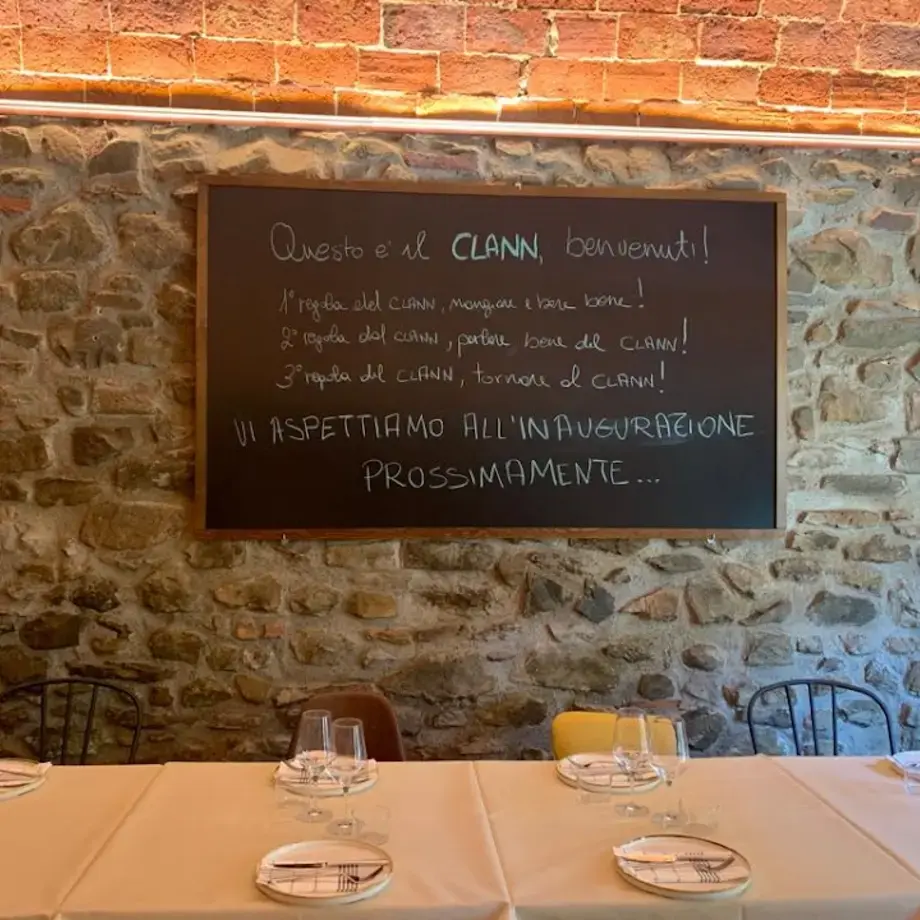 Questo e' il CLANN, benvenuti!
1° regola del CLANN, mangiare e bere bene!
2° regola del CLANN, parlare bene del CLANN!
3° regola del CLANN, tornare al CLANN!
VI ASPETTIAMO ALL'INAUGURAZIONE
PROSSIMAMENTE...